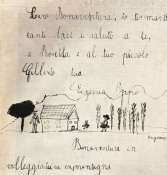 Caro Bonaventura, io ti mando
tanti baci e saluto a te,
a Rosita e al tuo piccolo
Gilberto tuo
Eugenia
Bonaventura in
villeggiatura in montagna